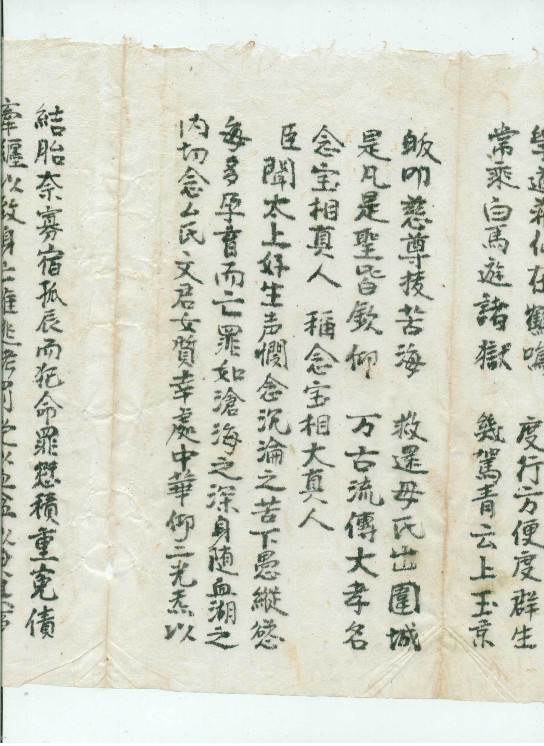 學道
度行方便度群生
常乘白馬遊諸獄 幾駕青云上玉京
皈叩慈尊拔苦海 救還母氏出圍城
是凡是聖皆欽仰 万古流傳大孝名
念宝相真人 稱念宝相大真人
臣聞太上好生声憫念沉淪之苦下愚縱慾
每多孕育而亡罪如滄海之深身随血湖之
内切念厶氏文君女質幸處中華仰二光𤇆以
結胎奈寡宿孤辰而犯命罪愆積重冤債
牽纏以致身亡